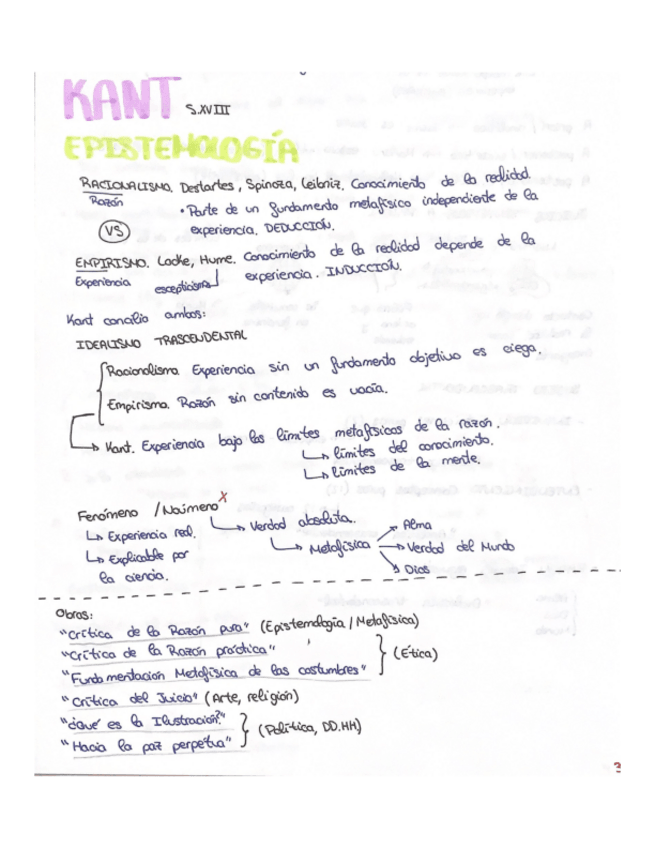 KANT S.XVIII
EPISTEMOLOGÍA
RACIONALISMO. Destartes, Spinoza, Leibniz. Conocimiento de la realidad.
Razón
• Parte de un fundamento metafísico independiente de la
experiencia. DEDUCCIÓN.
VS
EMPIRISMO. Locke, Hume. Conocimiento de la realidad depende de la
Experiencia escepticismo experiencia. INDUCCIÓN.
Kant concilia ambos:
IDEALISMO TRASCENDENTAL
Racionalismo. Experiencia sin un fundamento objetivo es ciega.
Empirismo. Razón sin contenido es vacía.
Kant. Experiencia bajo los límites metafísicos de la razón.
límites del conocimiento.
límites de la mente.
Fenómeno / Noúmeno X
Experiencia real. Verdad absoluta.
Explicable por la ciencia.
Metafísica
Alma
Verdad del Mundo
Dios
Obras:
"Crítica de la Razón pura" (Epistemología / Metafísica)
"Crítica de la Razón práctica"
(Ética)
"Fundamentación Metafísica de las costumbres"
"Crítica del Juicio" (Arte, religión)
"¿Qué es la Ilustración?"
(Política, DD.HH)
"Hacia la paz perpetua"
3